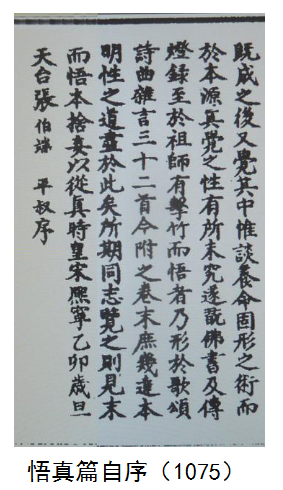 既成之後又覺其中惟談養命固形之術而
於本源真覺之性有所未究遂翫佛書及傳
燈錄至於祖師有擊竹而悟者乃形於歌頌
詩曲雜言三十二首今附之卷末庶幾達本
明性之道盡於此矣所期同志覽之則見末
而悟本捨妄以從真時皇宋熙寧乙卯歲旦
天台張伯端平叔序
悟真篇自序（1075）